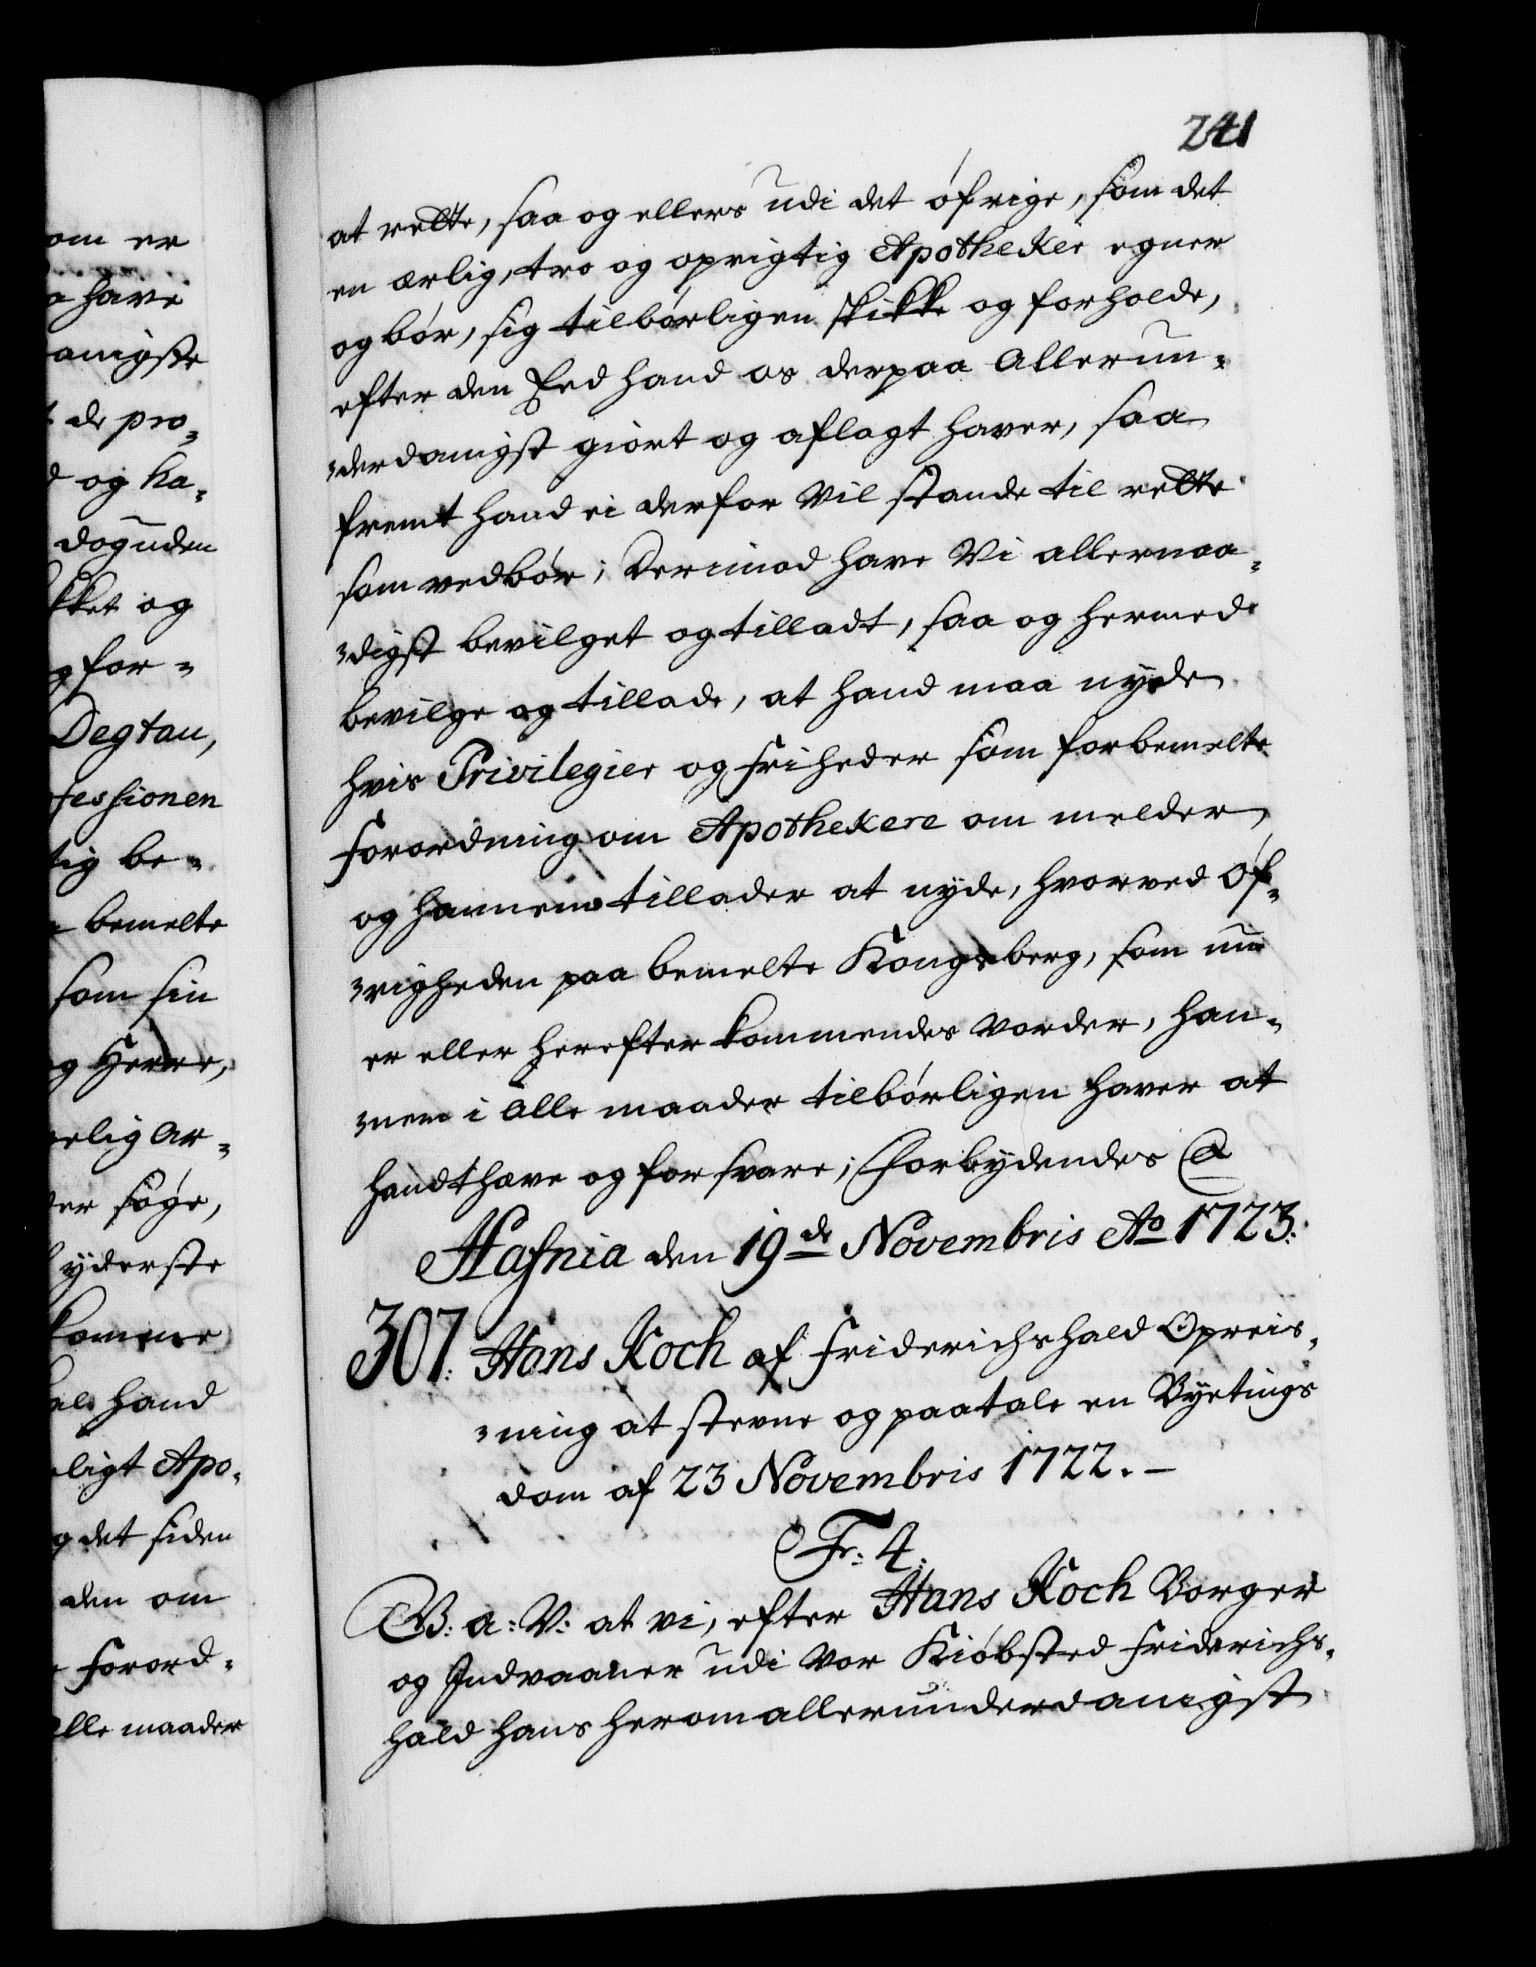 241
at rette, saa og ellers udi det øfrige, som det
en ærlig, tro og oprigtig Apotheker egner
og bør, sig tilbørligen skikke og forholde,
efter den Eed hand os derpaa allerun-
-derdanigst giort og aflagt haver, saa
fremt hand ei derfor vil stande til rette
som vedbør; Derimod have Vi allernaa-
-digst bevilget og tilladt, saa og hermed
bevilge og tillade, at hand maa nyde
hvis Privilegier og Friheder som forbemelte
Forordning om Apothekere om melder,
og hannem tillader at nyde, hvorved Øf-
-righeden paa bemelte Kongsberg, som nu
er eller herefter kommendes vorder, han-
-nem i alle maader tilbørligen haver at
handthæve og forsvare; Forbydendes &
Hafnia den 19de Novembris Ao 1723:
307: Hans Koch af Friderichshald Opreis-
-ning at stevne og paatale en Byetings
dom af 23 Novembris 1722. –
Fr: 4:
G: a: V: at vi, efter Hans Koch Borger
og Indvaaner udi vor Kiøbsted Friderichs-
hald hans herom allerunderdanigst
om er
have
anigste
de pro-
og ha-
dog uden
kket og
for-
Degtau,
fessionen
tig be-
bemelte
som sin
og Herre,
elig Ar-
der søge,
yderste
komme
hand
ligt Apo-
og det siden
den om
Forord-
alle maader